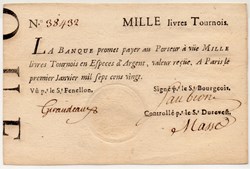 No. 38432 MILLE livres Tournois.
LA BANQUE promet payer au Porteur à vüe MILLE
livres Tournois en Especes d'Argent, valeur reçüe. A Paris le
premier Janvier mil sept cens vingt.
Vû p.r le S.r Fenellon. Signé p.r le S.r Bourgeois.
Giraudeau
Controllé p.r le S.r Durevest.